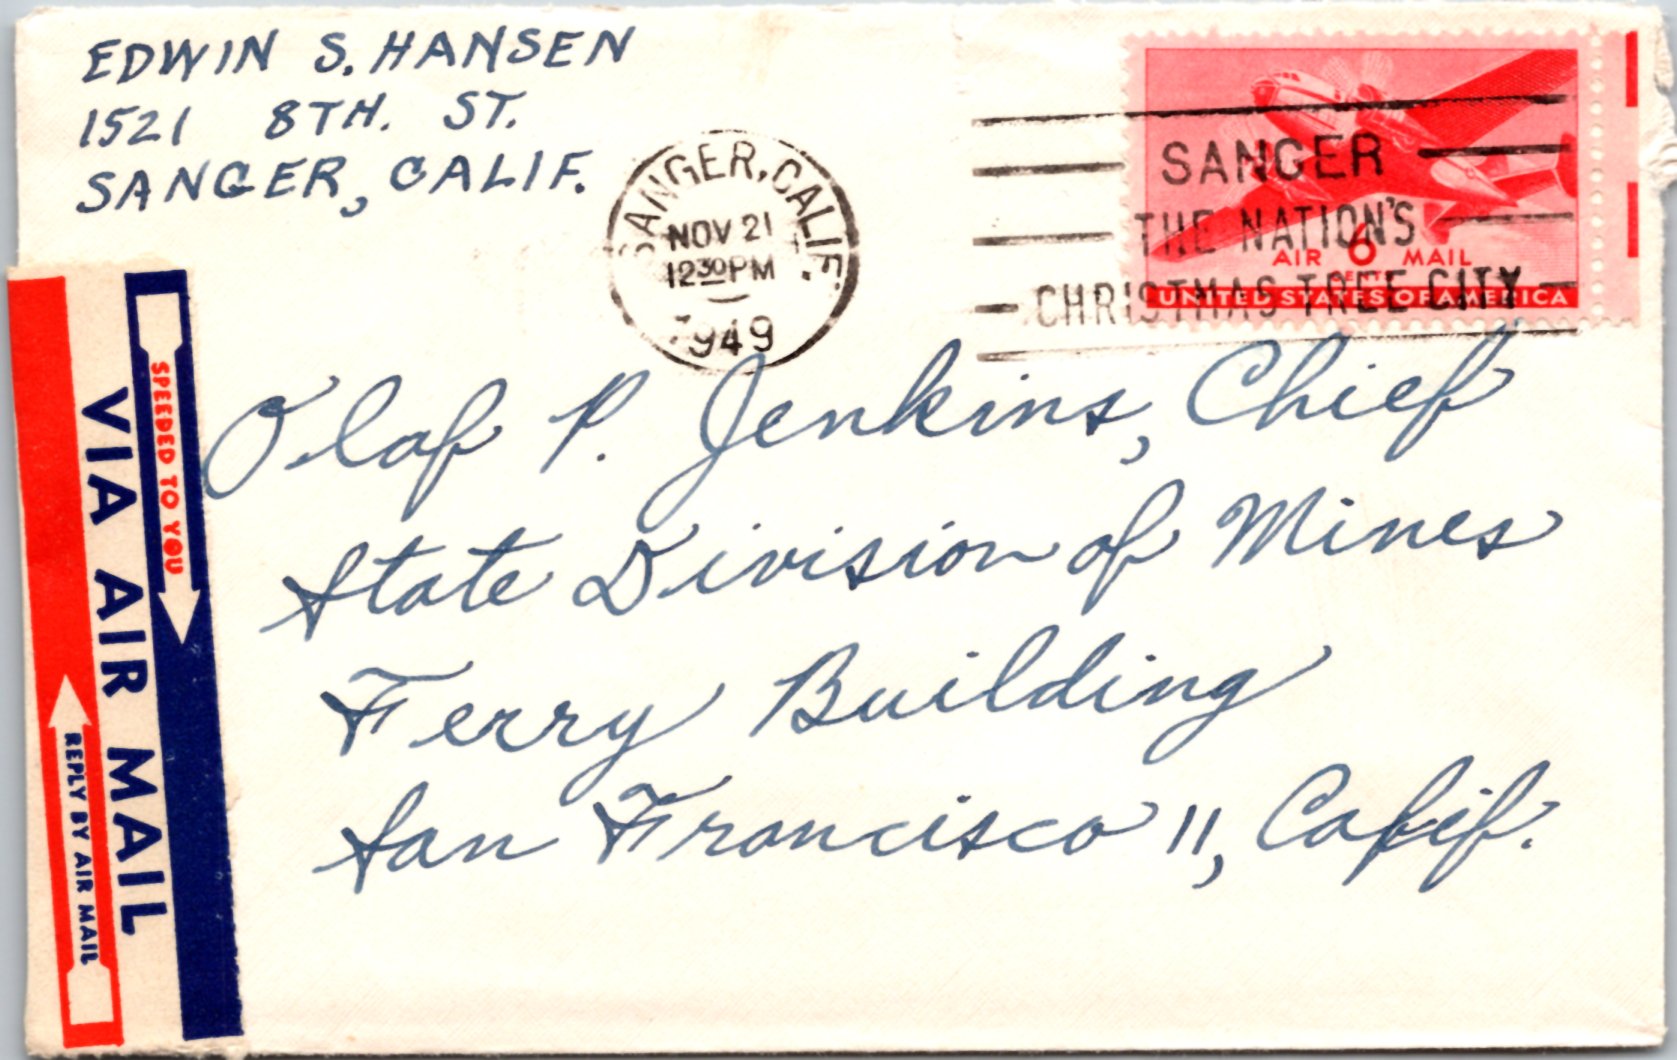 EDWIN S. HANSEN
1521 8TH. ST.
SANGER, CALIF.
SANGER, CALIF.
NOV 21
12 30 PM
1949
SANGER
THE NATION'S
CHRISTMAS TREE CITY
AIR 6 MAIL
CENTS
UNITED STATES OF AMERICA
SPEEDED TO YOU
VIA AIR MAIL
REPLY BY AIR MAIL
Olaf P. Jenkins, Chief
State Division of Mines
Ferry Building
San Francisco 11, Calif.